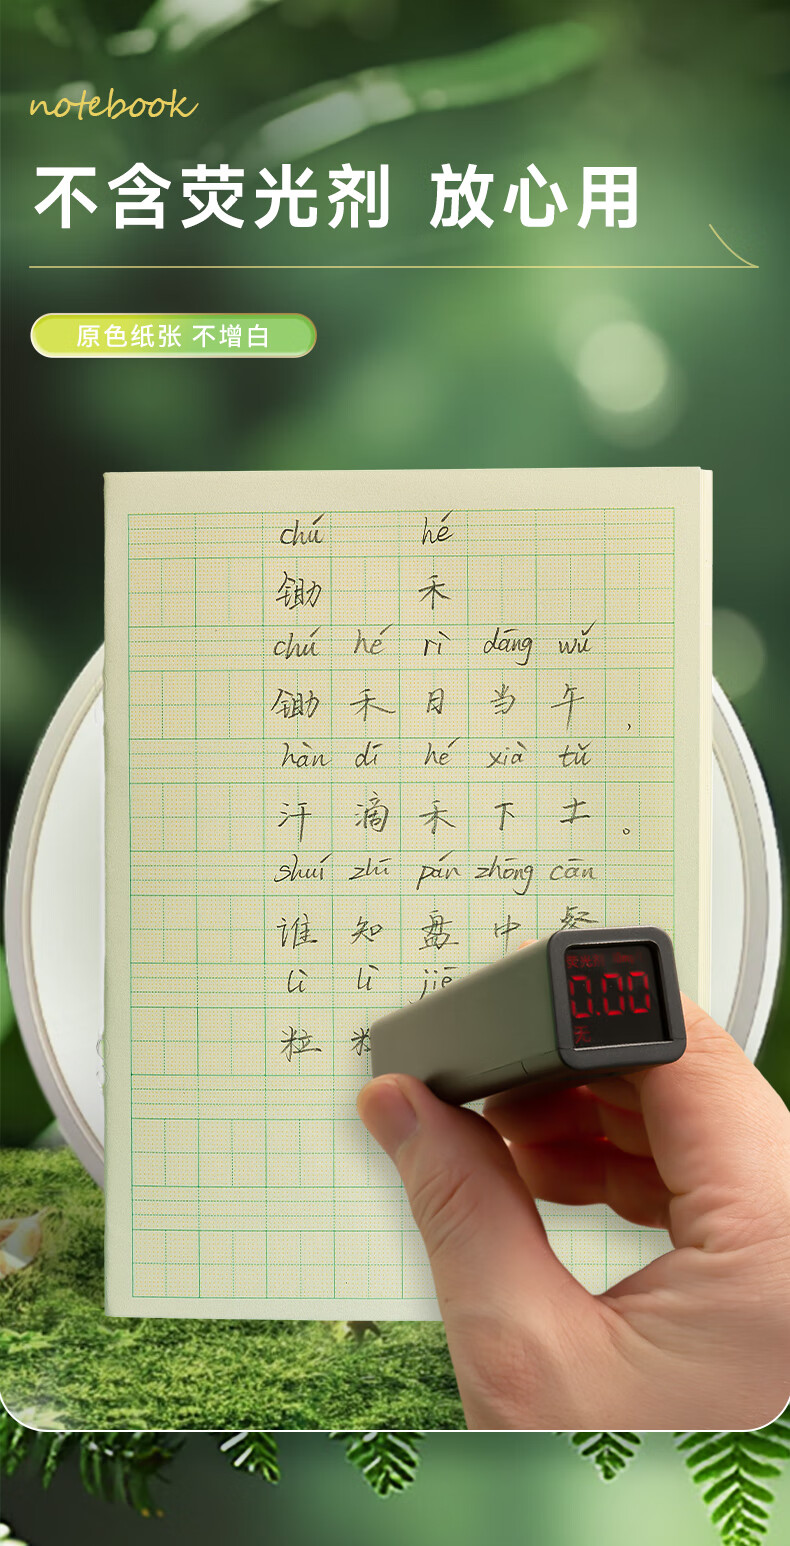 notebook
不含荧光剂 放心用
原色纸张 不增白
chú hé
锄 禾
chú hé rì dāng wǔ
锄 禾 日 当 午 ，
hàn dī hé xià tǔ
汗 滴 禾 下 土 。
shuí zhī pán zhōng cān
谁 知 盘 中 餐
lì lì jiē
粒
荧光剂
0.00
无